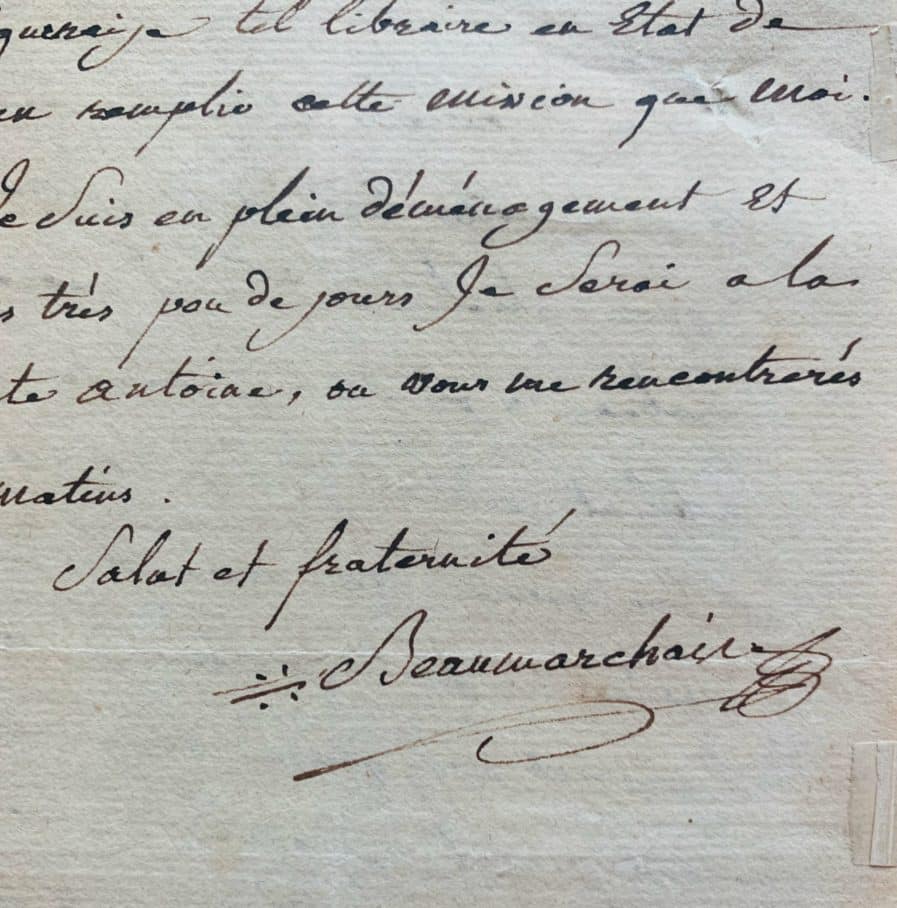 tel libraire en Etat de
remplir cette mission que moi.
Je Suis en plein déménagement Et
s très peu de jours Je Serai a la
te antoine, ou vous me rencontrerés
matins.
Salut et fraternité
Beaumarchais